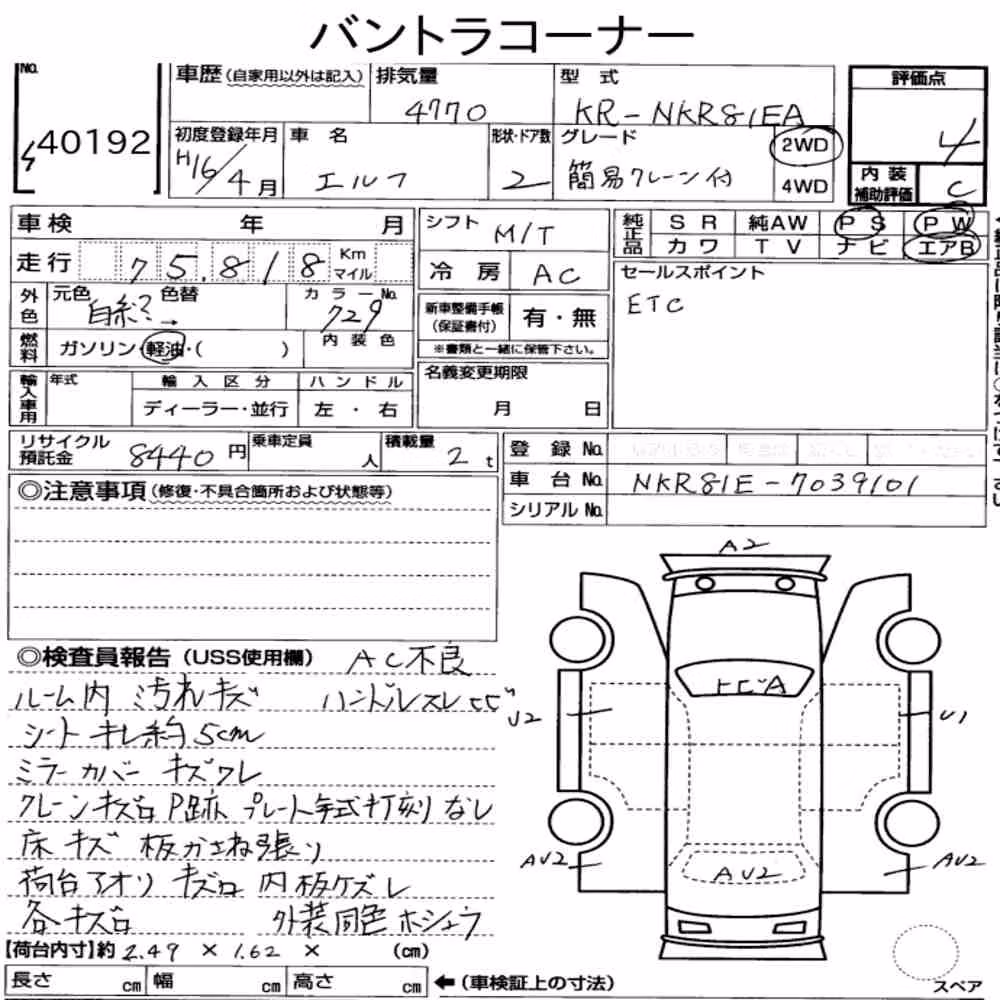 バントラコーナー
No. 車歴(自家用以外は記入) 排気量 型式 評価点
4770 KR-NKR81EA 4
40192
初度登録年月 車名 形状・ドア数 グレード 2WD
H16/4月 エルフ 2 簡易クレーン付 4WD
内装補助評価 C
車検 年 月 シフト M/T 純正品 SR 純AW PS PW
カワ TV ナビ エアB
走行 75,818 Km マイル 冷房 AC セールスポイント
ETC
外色 元色 色替 カラーNo. 729 新車整備手帳(保証書付) 有・無
白 →
※書類と一緒に保管下さい。
燃料 ガソリン・軽油・( ) 内装色
輸入車用 年式 輸入区分 ハンドル 名義変更期限
ディーラー・並行 左・右 月 日
リサイクル預託金 8440円 乗車定員 人 積載量 2t 登録No.
車台No. NKR81E-7039101
シリアルNo.
◎注意事項(修復・不具合箇所および状態等)
◎検査員報告(USS使用欄) AC不良
ルーム内 汚れキズ ハンドルスレ
シート キレ約5cm
ミラーカバー キズワレ
クレーンキズロ P跡 プレート年式打刻なし
床キズ 板かさね張り
荷台アオリ キズロ 内板ケズレ
各キズロ 外装同色ホシュウ
【荷台内寸】約 2.49 × 1.62 × (cm)
長さ cm 幅 cm 高さ cm ←(車検証上の寸法)
A2
トビA
U2
U1
AU2
AU2
AU2
スペア